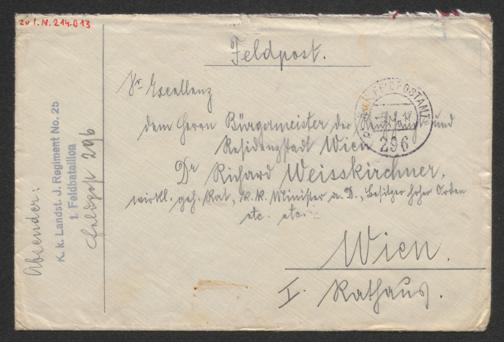 zu I.N. 214.613
Feldpost.
Sr Excellenz
dem Herrn Bürgermeister der und
Residenzstadt Wien
Dr Richard Weisskirchner,
wirkl. geh. Rat, k.k. Minister a. D., Besitzer hoher Orden
etc. etc.
Wien.
I. Rathaus.
296
Absender:
K. k. Landst. I. Regiment No. 25
1. Feldbataillon
Feldpost 296